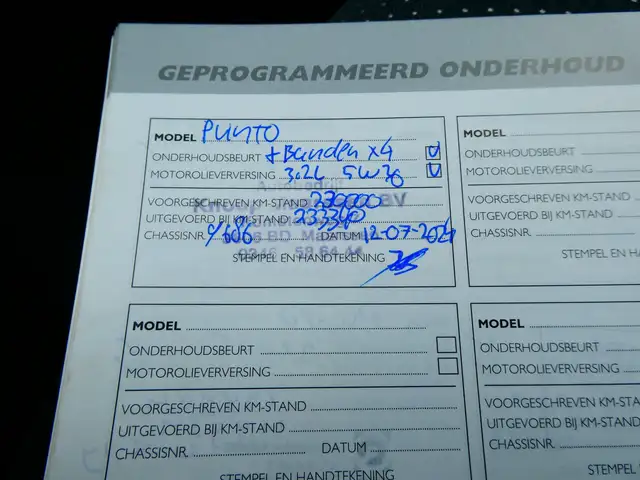 GEPROGRAMMEERD ONDERHOUD
MODEL PUNTO
ONDERHOUDSBEURT + Banden x4
MOTOROLIEVERVERSING 3.2L 5W30
VOORGESCHREVEN KM-STAND 230000
UITGEVOERD BIJ KM-STAND 233340
CHASSISNR. DATUM 12-07-2021
STEMPEL EN HANDTEKENING
MODEL
ONDERHOUDSBEURT
MOTOROLIEVERVERSING
VOORGESCHREVEN KM-STAND
UITGEVOERD BIJ KM-STA
CHASSISNR.
STEMPEL EN HAN
MODEL
ONDERHOUDSBEURT
MOTOROLIEVERVERSING
VOORGESCHREVEN KM-STAND
UITGEVOERD BIJ KM-STAND
CHASSISNR. DATUM
STEMPEL EN HANDTEKENING
MODEL
ONDERHOUDSBEURT
MOTOROLIEVERVERSING
VOORGESCHREVEN KM-STA
UITGEVOERD BIJ KM-STAN
CHASSISNR.
STEMPEL EN HA